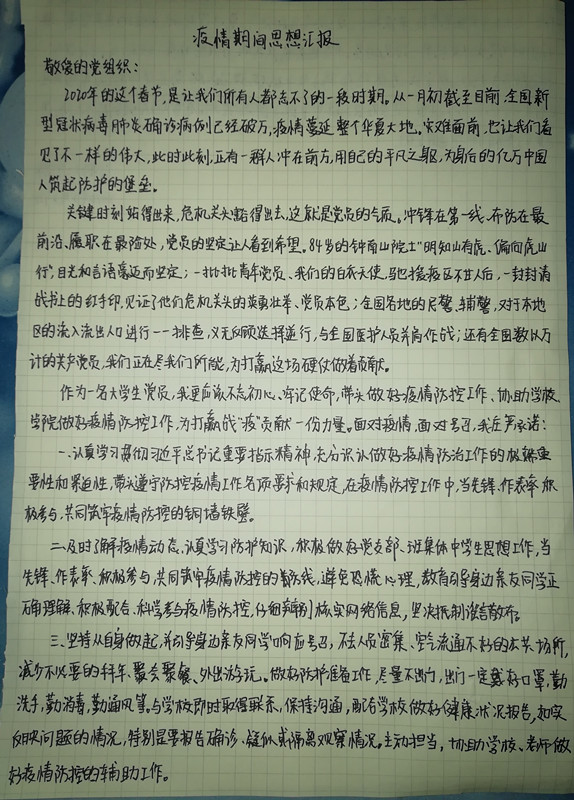 疫情期间思想汇报
敬爱的党组织：
2020年的这个春节，是让我们所有人都忘不了的一段时期。从一月初截至目前，全国新
型冠状病毒肺炎确诊病例已经破万，疫情蔓延整个华夏大地。灾难面前，也让我们看
见了不一样的伟大，此时此刻，正有一群人冲在前方，用自己的平凡之躯，为身后的亿万中国
人筑起防护的堡垒。
关键时刻站得出来，危机关头豁得出去，这就是党员的气质。冲锋在第一线、布防在最
前沿、履职在最险处，党员的坚定让人看到希望。84岁的钟南山院士“明知山有虎、偏向虎山
行”，目光和言语豪迈而坚定；一批批青年党员、我们的白衣天使，驰援疫区不甘人后，一封封请
战书上的红手印，见证了他们危机关头的英勇壮举、党员本色；全国各地的民警、辅警，对于本地
区的流入流出人口进行一一排查，义无反顾选择逆行，与全国医护人员并肩作战；还有全国数以万
计的共产党员，我们正在尽我们所能，为打赢这场硬仗做着贡献。
作为一名大学生党员，我更应该不忘初心、牢记使命，带头做好疫情防控工作、协助学校、
学院做好疫情防控工作，为打赢战“疫”贡献一份力量。面对疫情，面对号召，我庄严承诺：
一、认真学习贯彻习近平总书记重要指示精神，充分认识做好疫情防治工作的极端重
要性和紧迫性，带头遵守防控疫情工作各项要求和规定，在疫情防控工作中，当先锋、作表率、积
极参与，共同筑牢疫情防控的铜墙铁壁。
二、及时了解疫情动态，认真学习防护知识，积极做好党支部、班集体中学生思想工作，当
先锋、作表率、积极参与，共同筑牢疫情防控的防线，避免恐慌心理，教育引导身边亲友同学正
确理解、积极配合、科学参与疫情防控，仔细辨别核实网络信息，坚决抵制谣言散布。
三、坚持从自身做起，并引导身边亲友同学响应号召，不去人员密集、空气流通不好的公共场所，
减少不必要的拜年、聚会聚餐、外出游玩。做好防护准备工作，尽量不出门，出门一定戴好口罩，勤
洗手，勤消毒，勤通风等。与学校即时取得联系，保持沟通，配合学校做好健康状况报告，如实
反映问题的情况，特别是要报告确诊、疑似或隔离观察情况。主动担当，协助学校、老师做
好疫情防控的辅助工作。